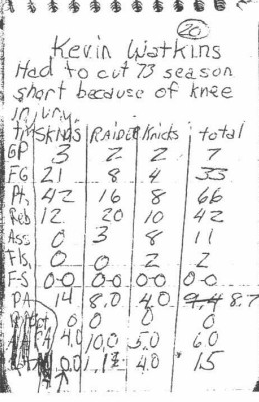 20
Kevin Watkins
Had to cut 73 season
short because of knee
injury.
tm SKNDS RAIDER Knicks total
GP 3 2 2 7
FG 21 8 4 33
Pt, 42 16 8 66
Reb 12 20 10 42
Ass 0 3 8 11
Fls, 0 0 2 2
FS 0-0 0-0 0-0 0-0
PA 14 8.0 4.0 9.4 8.7
0 0 0 0
4.0 10.0 5.0 6.0
0.0 4.0 1.5